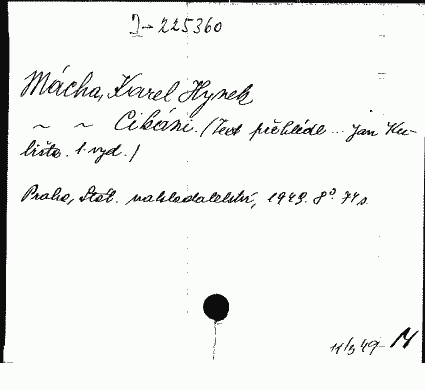 I-225360
Mácha, Karel Hynek
~ ~ Cikáni. (Text přehlédl ... Jan Ku-
lišta. 1. vyd.)
Praha, Stát. nakladatelství, 1949. 8° 71 s.
11/3 49 M